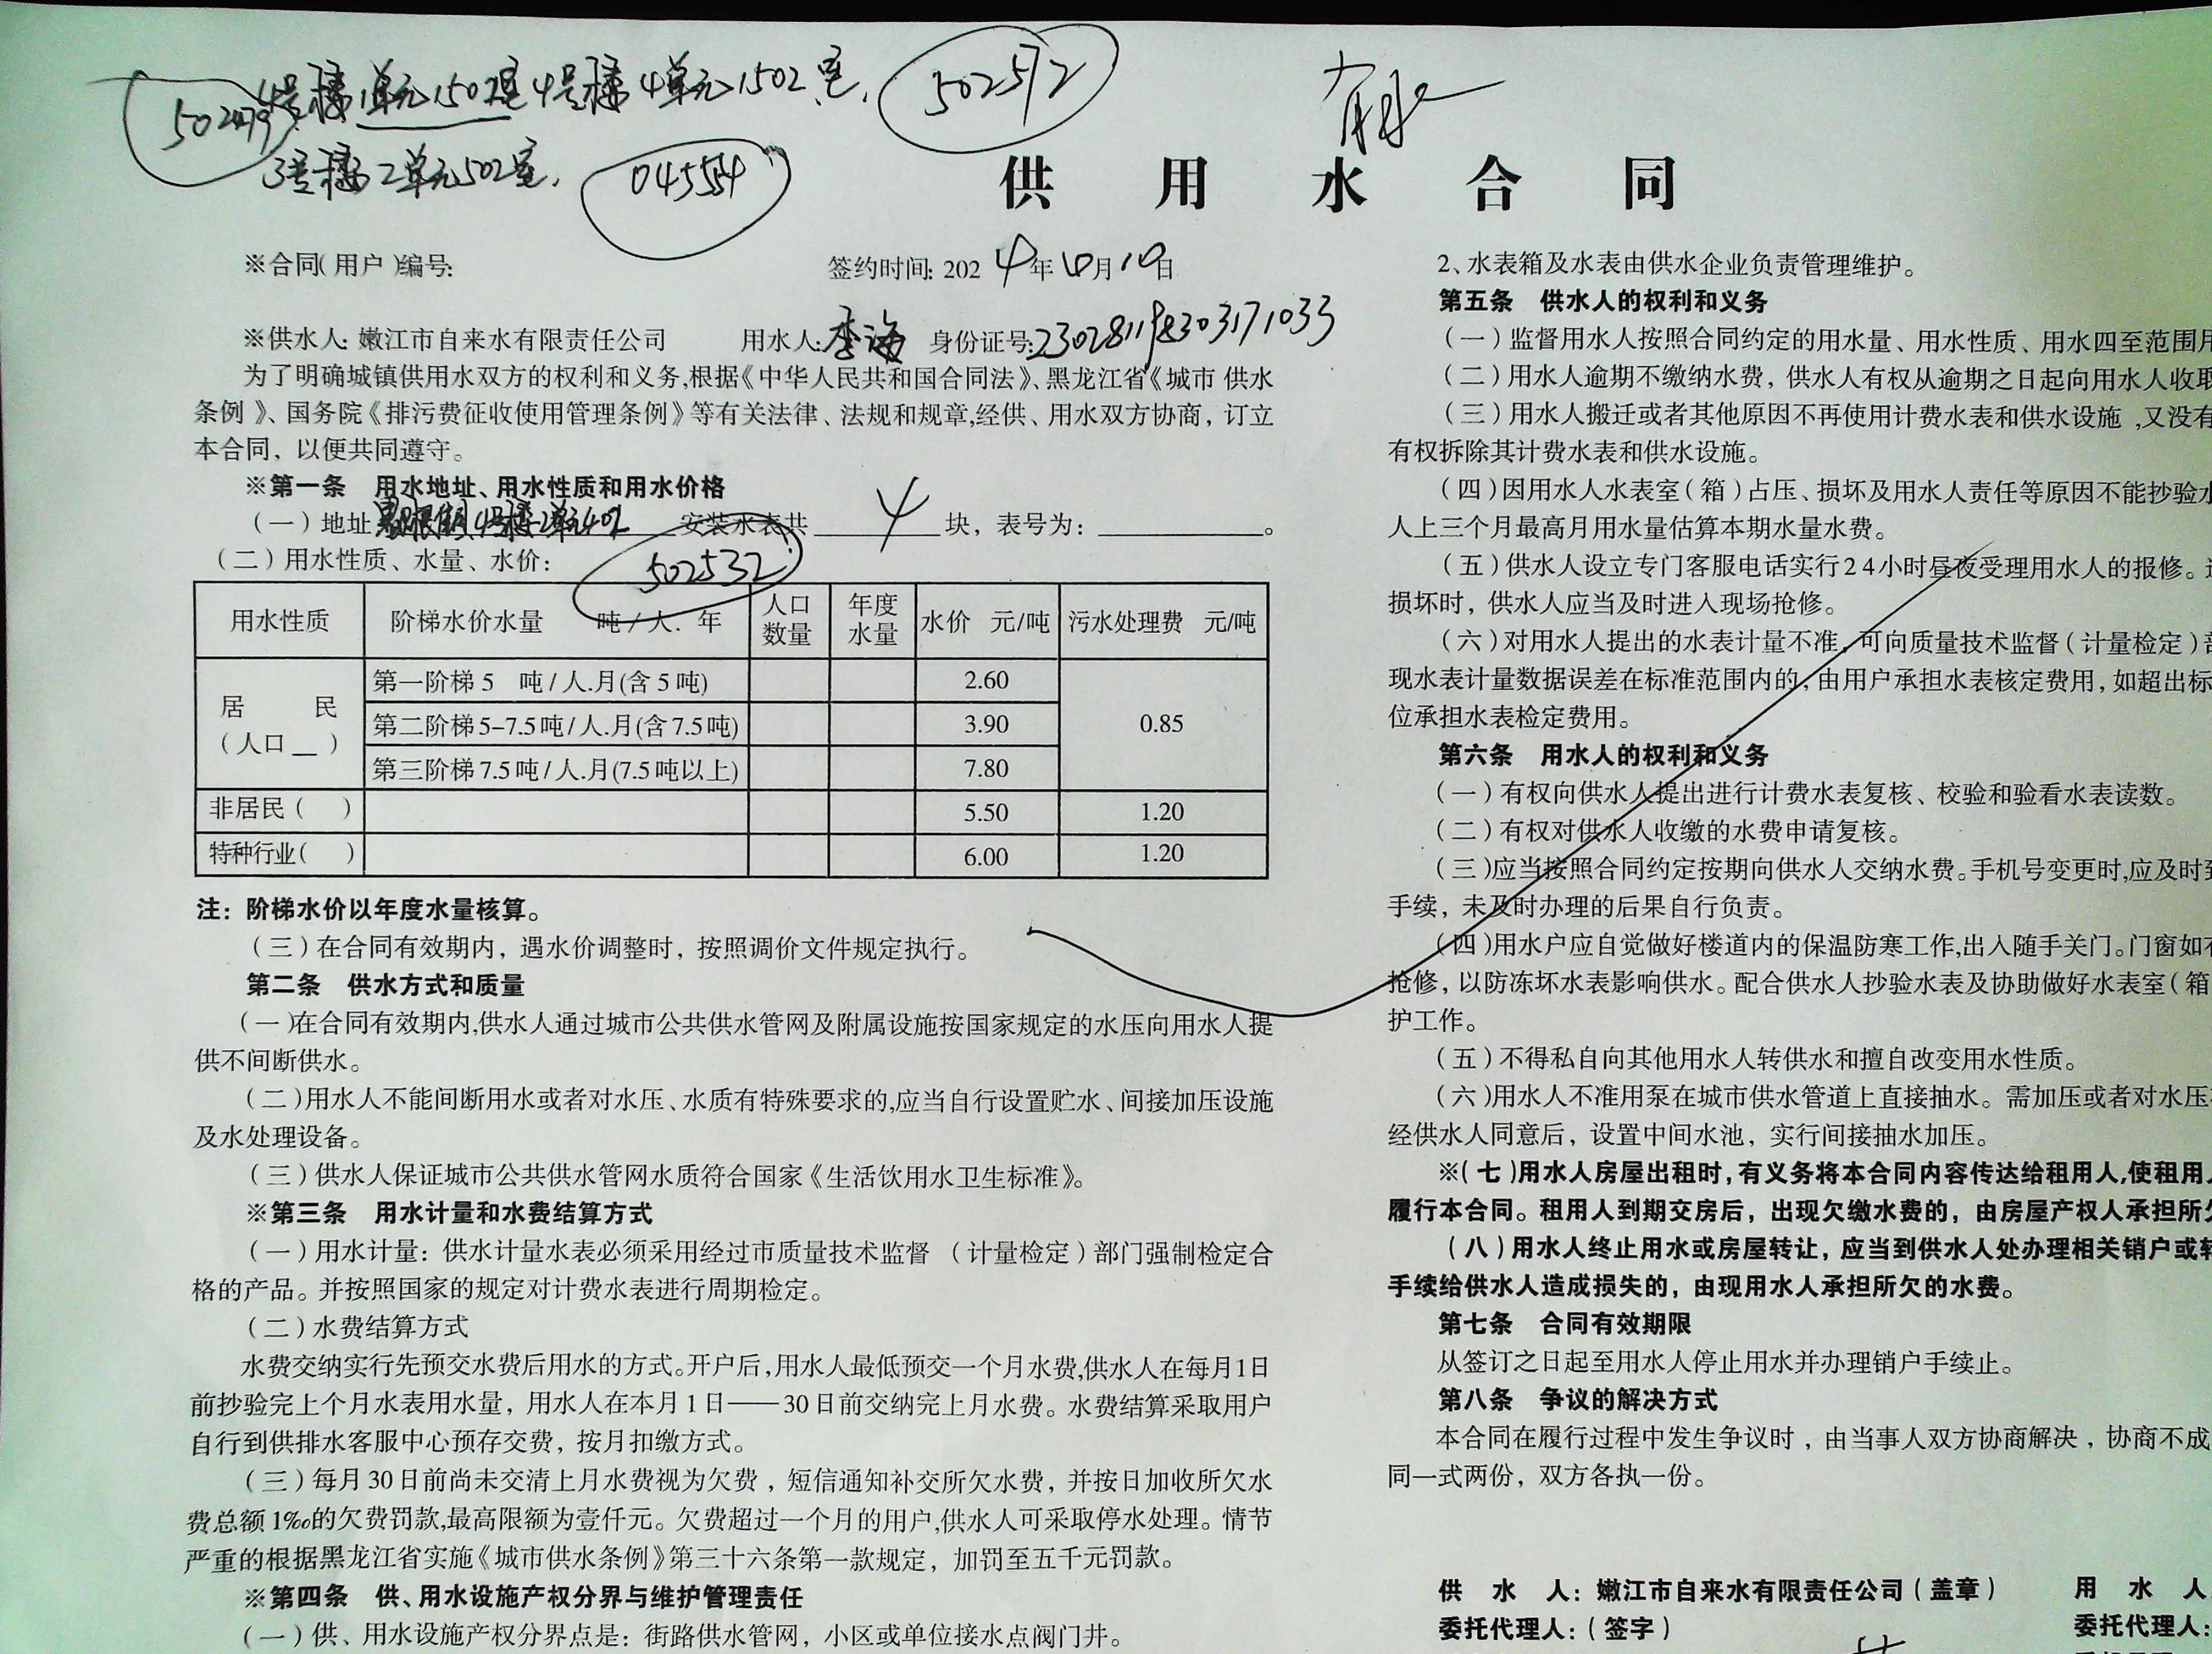 4号楼1单元1502室 4号楼4单元1502室,
502479
502572
3号楼2单元502室,
04554
供用水合同
※合同(用户)编号:
签约时间: 2024年10月10日
※供水人: 嫩江市自来水有限责任公司 用水人: 李海 身份证号: 230281198303171033
为了明确城镇供用水双方的权利和义务,根据《中华人民共和国合同法》、黑龙江省《城市 供水
条例》、国务院《排污费征收使用管理条例》等有关法律、法规和规章,经供、用水双方协商, 订立
本合同, 以便共同遵守。
※第一条 用水地址、用水性质和用水价格
(一)地址 4号楼2单元402 安装水表共 4 块, 表号为: 。
502532
(二)用水性质、水量、水价:
用水性质 阶梯水价水量 吨/人. 年 人口数量 年度水量 水价 元/吨 污水处理费 元/吨
居 民
(人口 )
第一阶梯 5 吨/人.月(含 5 吨) 2.60
第二阶梯 5-7.5吨/人.月(含 7.5吨) 3.90 0.85
第三阶梯 7.5吨/人.月(7.5吨以上) 7.80
非居民( ) 5.50 1.20
特种行业( ) 6.00 1.20
注: 阶梯水价以年度水量核算。
(三)在合同有效期内, 遇水价调整时, 按照调价文件规定执行。
第二条 供水方式和质量
(一)在合同有效期内,供水人通过城市公共供水管网及附属设施按国家规定的水压向用水人提
供不间断供水。
(二)用水人不能间断用水或者对水压、水质有特殊要求的,应当自行设置贮水、间接加压设施
及水处理设备。
(三)供水人保证城市公共供水管网水质符合国家《生活饮用水卫生标准》。
※第三条 用水计量和水费结算方式
(一)用水计量: 供水计量水表必须采用经过市质量技术监督 (计量检定)部门强制检定合
格的产品。并按照国家的规定对计费水表进行周期检定。
(二)水费结算方式
水费交纳实行先预交水费后用水的方式。开户后,用水人最低预交一个月水费,供水人在每月1日
前抄验完上个月水表用水量, 用水人在本月 1 日——30 日前交纳完上月水费。水费结算采取用户
自行到供排水客服中心预存交费, 按月扣缴方式。
(三)每月 30 日前尚未交清上月水费视为欠费, 短信通知补交所欠水费, 并按日加收所欠水
费总额 1‰的欠费罚款,最高限额为壹仟元。欠费超过一个月的用户,供水人可采取停水处理。情节
严重的根据黑龙江省实施《城市供水条例》第三十六条第一款规定, 加罚至五千元罚款。
※第四条 供、用水设施产权分界与维护管理责任
(一)供、用水设施产权分界点是: 街路供水管网, 小区或单位接水点阀门井。
2、水表箱及水表由供水企业负责管理维护。
第五条 供水人的权利和义务
(一)监督用水人按照合同约定的用水量、用水性质、用水四至范围用
(二)用水人逾期不缴纳水费, 供水人有权从逾期之日起向用水人收取
(三)用水人搬迁或者其他原因不再使用计费水表和供水设施,又没有
有权拆除其计费水表和供水设施。
(四)因用水人水表室(箱)占压、损坏及用水人责任等原因不能抄验水
人上三个月最高月用水量估算本期水量水费。
(五)供水人设立专门客服电话实行24小时昼夜受理用水人的报修。
损坏时, 供水人应当及时进入现场抢修。
(六)对用水人提出的水表计量不准, 可向质量技术监督(计量检定)部
现水表计量数据误差在标准范围内的, 由用户承担水表核定费用, 如超出标
位承担水表检定费用。
第六条 用水人的权利和义务
(一)有权向供水人提出进行计费水表复核、校验和验看水表读数。
(二)有权对供水人收缴的水费申请复核。
(三)应当按照合同约定按期向供水人交纳水费。手机号变更时,应及时到
手续, 未及时办理的后果自行负责。
(四)用水户应自觉做好楼道内的保温防寒工作,出入随手关门。门窗如有
抢修, 以防冻坏水表影响供水。配合供水人抄验水表及协助做好水表室(箱
护工作。
(五)不得私自向其他用水人转供水和擅自改变用水性质。
(六)用水人不准用泵在城市供水管道上直接抽水。需加压或者对水压
经供水人同意后, 设置中间水池, 实行间接抽水加压。
※(七)用水人房屋出租时, 有义务将本合同内容传达给租用人,使租用人
履行本合同。租用人到期交房后, 出现欠缴水费的, 由房屋产权人承担所欠
(八)用水人终止用水或房屋转让, 应当到供水人处办理相关销户或转
手续给供水人造成损失的, 由现用水人承担所欠的水费。
第七条 合同有效期限
从签订之日起至用水人停止用水并办理销户手续止。
第八条 争议的解决方式
本合同在履行过程中发生争议时, 由当事人双方协商解决, 协商不成
同一式两份, 双方各执一份。
供 水 人: 嫩江市自来水有限责任公司(盖章) 用 水 人
委托代理人:(签字) 委托代理人: